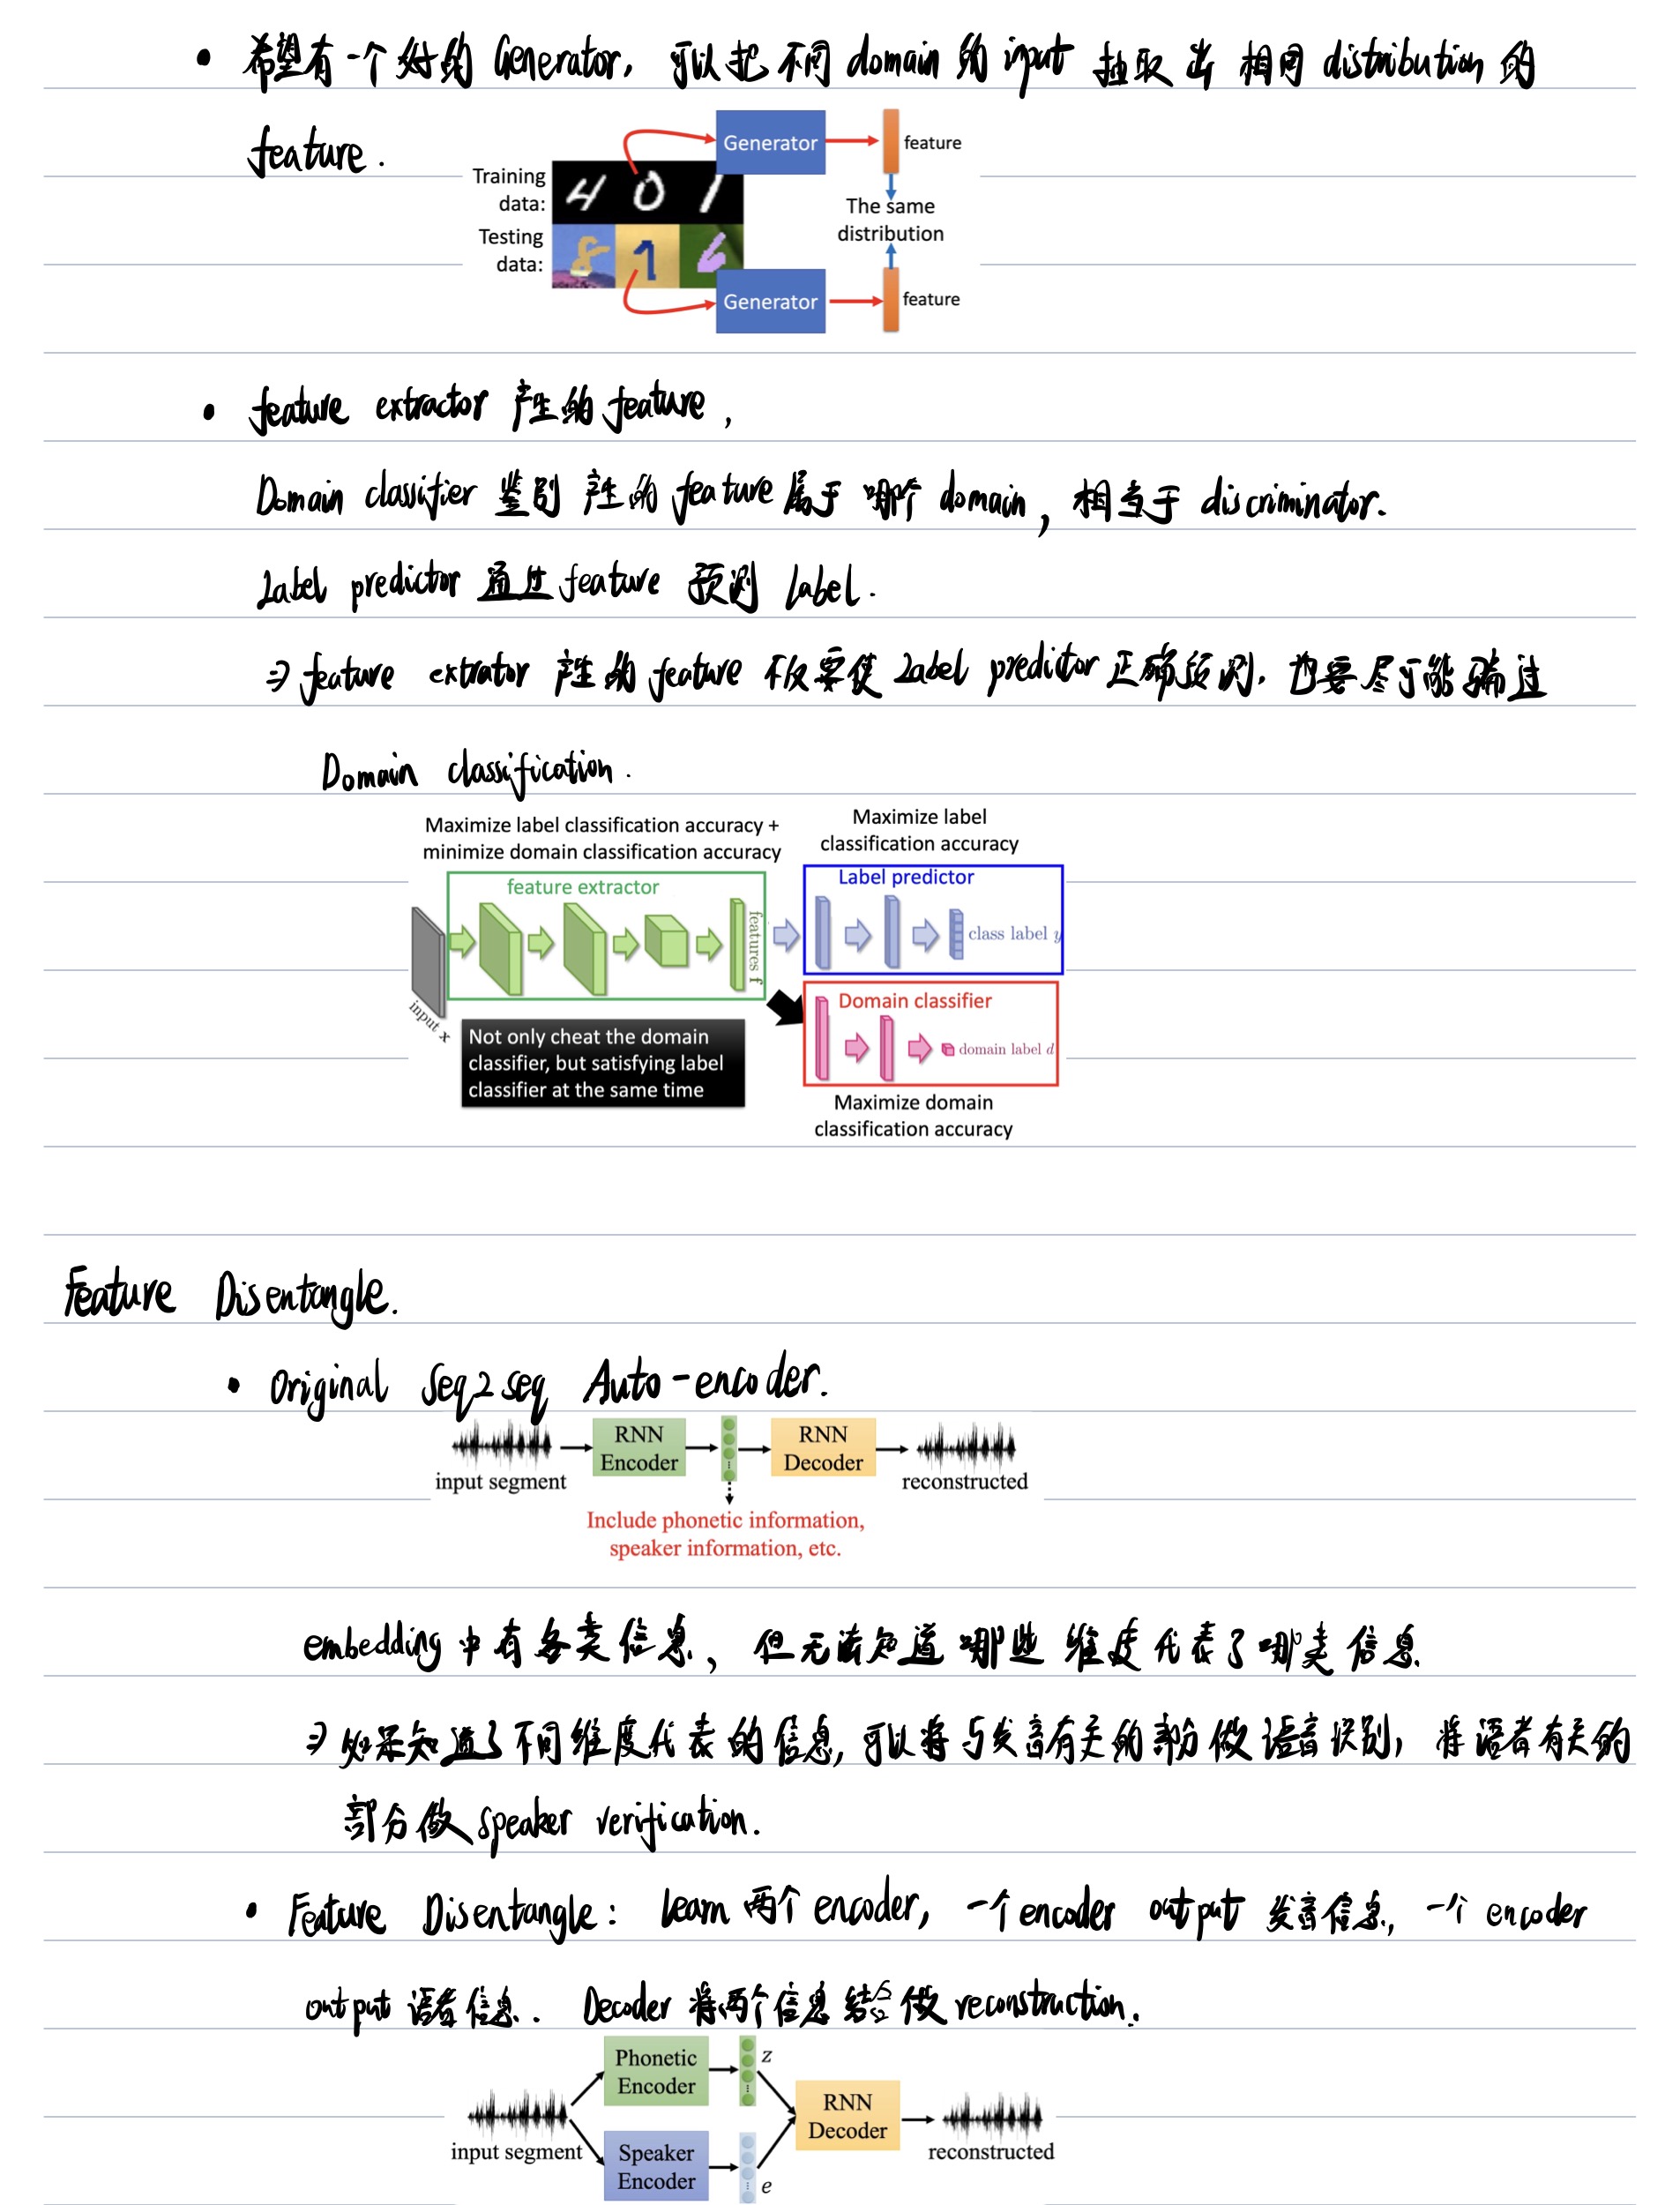 • 希望有一个好的 Generator, 可以把不同 domain 的 input 抽取出相同 distribution 的
feature.
Generator
feature
Training
data:
4 0 1
The same
distribution
Testing
data:
8 1 6
Generator
feature
• feature extractor 产生的 feature,
Domain classifier 鉴别产生的 feature 属于哪个 domain, 相当于 discriminator.
Label predictor 通过 feature 预测 label.
⇒ feature extrator 产生的 feature 不仅要使 Label predictor 正确预测, 也要尽可能骗过
Domain classification.
Maximize label classification accuracy +
minimize domain classification accuracy
Maximize label
classification accuracy
feature extractor
Label predictor
features f
class label y
input x
Not only cheat the domain
classifier, but satisfying label
classifier at the same time
Domain classifier
domain label d
Maximize domain
classification accuracy
Feature Disentangle.
• Original Seq2seq Auto-encoder.
RNN
Encoder
RNN
Decoder
input segment
reconstructed
Include phonetic information,
speaker information, etc.
embedding 中有各类信息, 但无法知道哪些维度代表了哪类信息.
⇒ 如果知道了不同维度代表的信息, 可以将与发音有关的部分做语音识别, 将语者有关的
部分做 speaker verification.
• Feature Disentangle: learn 两个 encoder, 一个 encoder output 发音信息, 一个 encoder
output 语者信息. Decoder 将两个信息结合做 reconstruction.
Phonetic
Encoder
z
RNN
Decoder
input segment
reconstructed
Speaker
Encoder
e